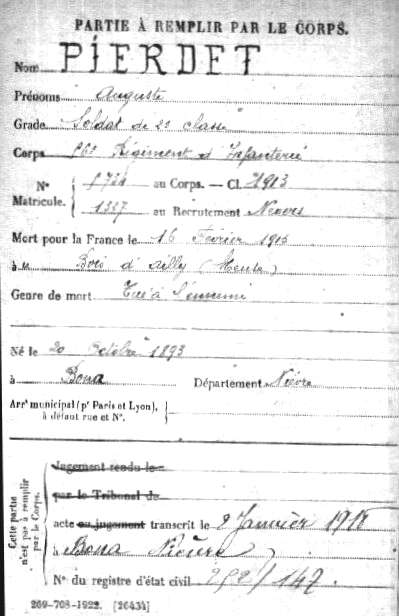 PARTIE À REMPLIR PAR LE CORPS.
Nom PIERDET
Prénoms Auguste
Grade Soldat de 2e classe
Corps 56e Régiment d'Infanterie
N° Matricule. { au Corps. — Cl. 1913
1337 au Recrutement Nevers
Mort pour la France le 16 Février 1915
à Bois d'ailly (Meuse)
Genre de mort Tué à l'ennemi
Né le 20 Octobre 1893
à Bona Département Nièvre
Arrt municipal (pr Paris et Lyon), à défaut rue et N°.
Cette partie n'est pas à remplir par le Corps.
Jugement rendu le
par le Tribunal de
acte ou jugement transcrit le 2 Janvier
à Bona Nièvre
N° du registre d'état civil 292/147
269-708-1922. [26434]